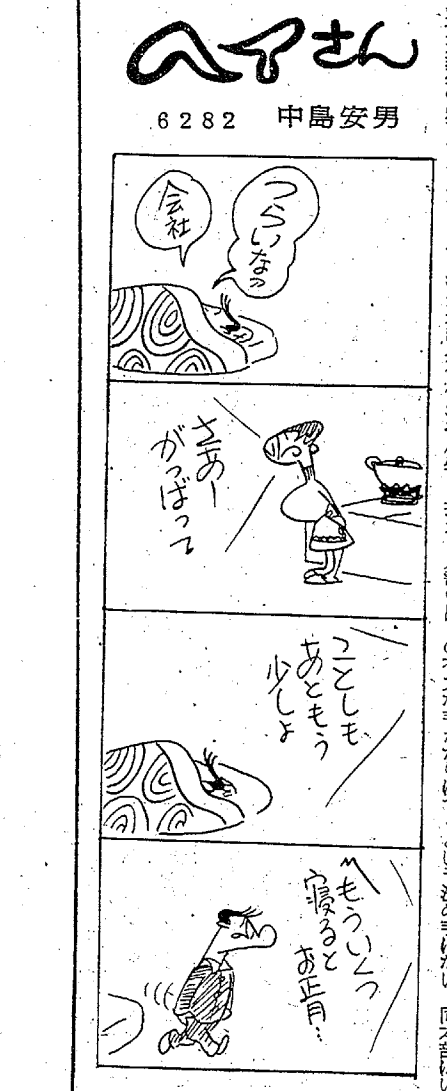 ヘイさん
6282　中島安男
つらいなァ
会社
さあー
がんばって
ことしも
あともう
少しよ
〽もういくつ
寝ると
お正月…